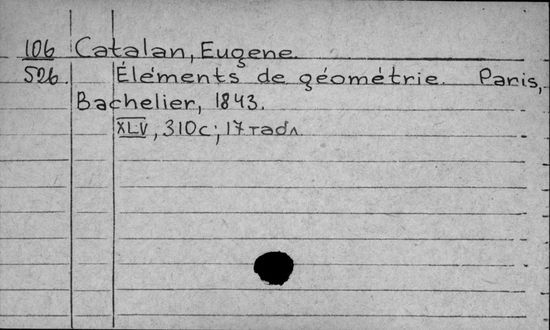 106 Catalan, Eugene.
526. Éléments de géométrie. Paris,
Bachelier, 1843.
XLV, 310с; 17 табл.